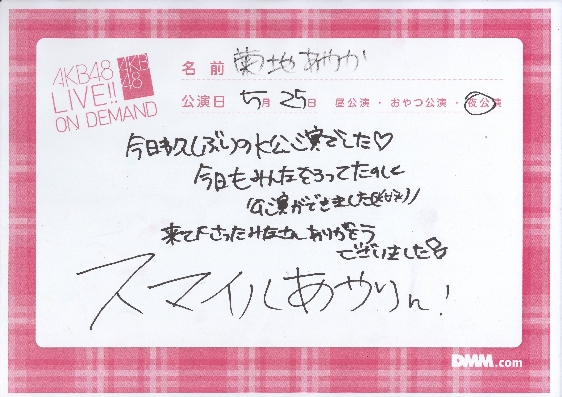 AKB48
LIVE!!
ON DEMAND
AKB
48
名前 菊地あやか
公演日 5月 25日 昼公演・おやつ公演・夜公演
今日は久しぶりのK公演でした♡
今日もみんなそろってたのしく
公演ができました(≧∀≦)//
来て下さったみなさんありがとう
ございました
スマイルあやりん!
DMM.com